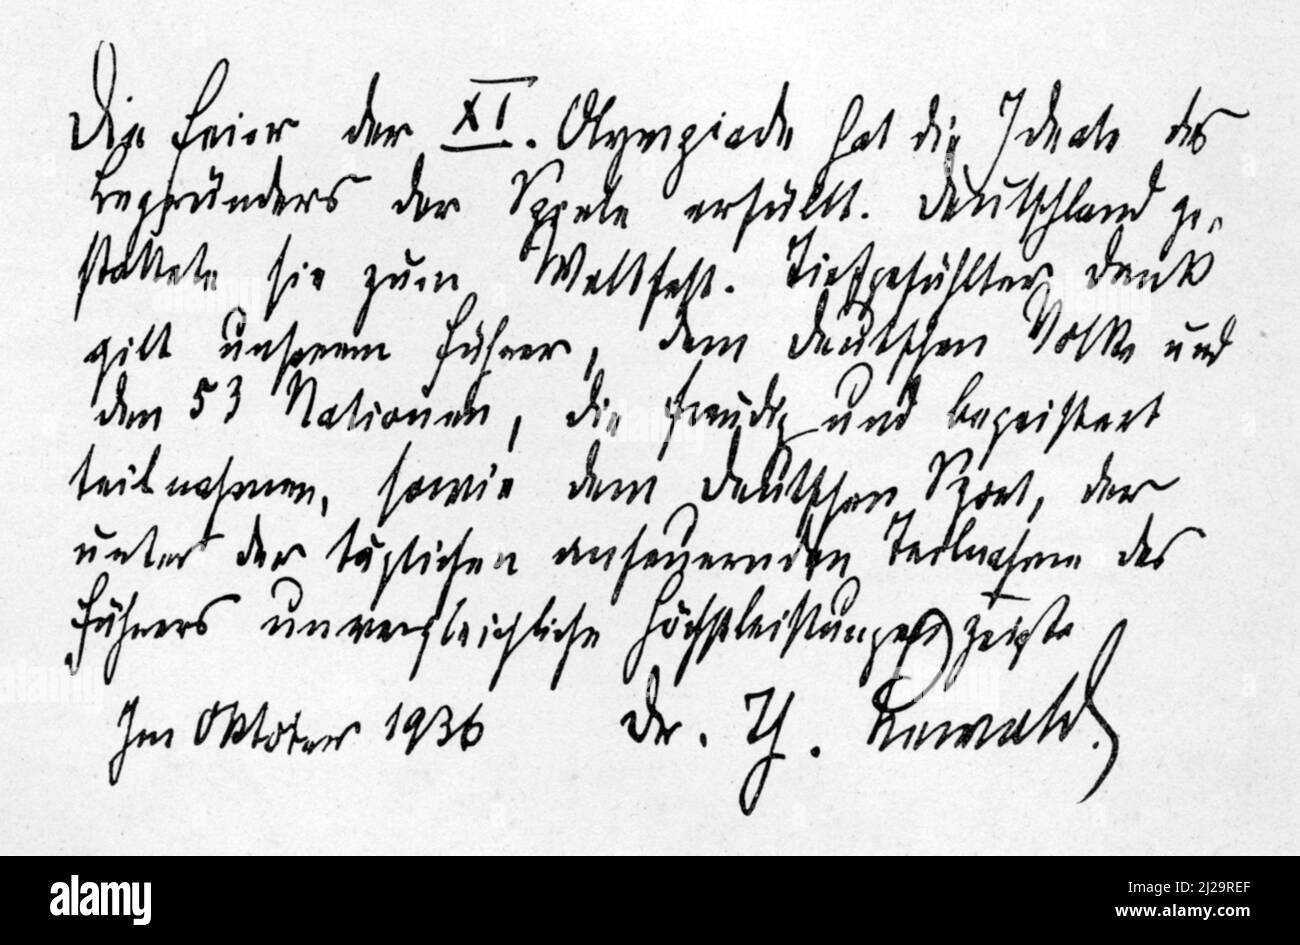 Die Feier der XI. Olympiade hat die Ideale des
Begründers der Spiele erfüllt. Deutschland ge-
staltete sie zum Weltfest. Tiefgefühlter Dank
gilt unserem Führer, dem deutschen Volke und
den 53 Nationen, die freudig und begeistert
teilnahmen, sowie dem deutschen Sport, der
unter der täglichen anfeuernden Teilnahme des
Führers unvergleichliche Höchstleistungen zeigte
Im Oktober 1936 Dr. Th. Lewald.
alamy
Image ID: 2J29REF
www.alamy.com